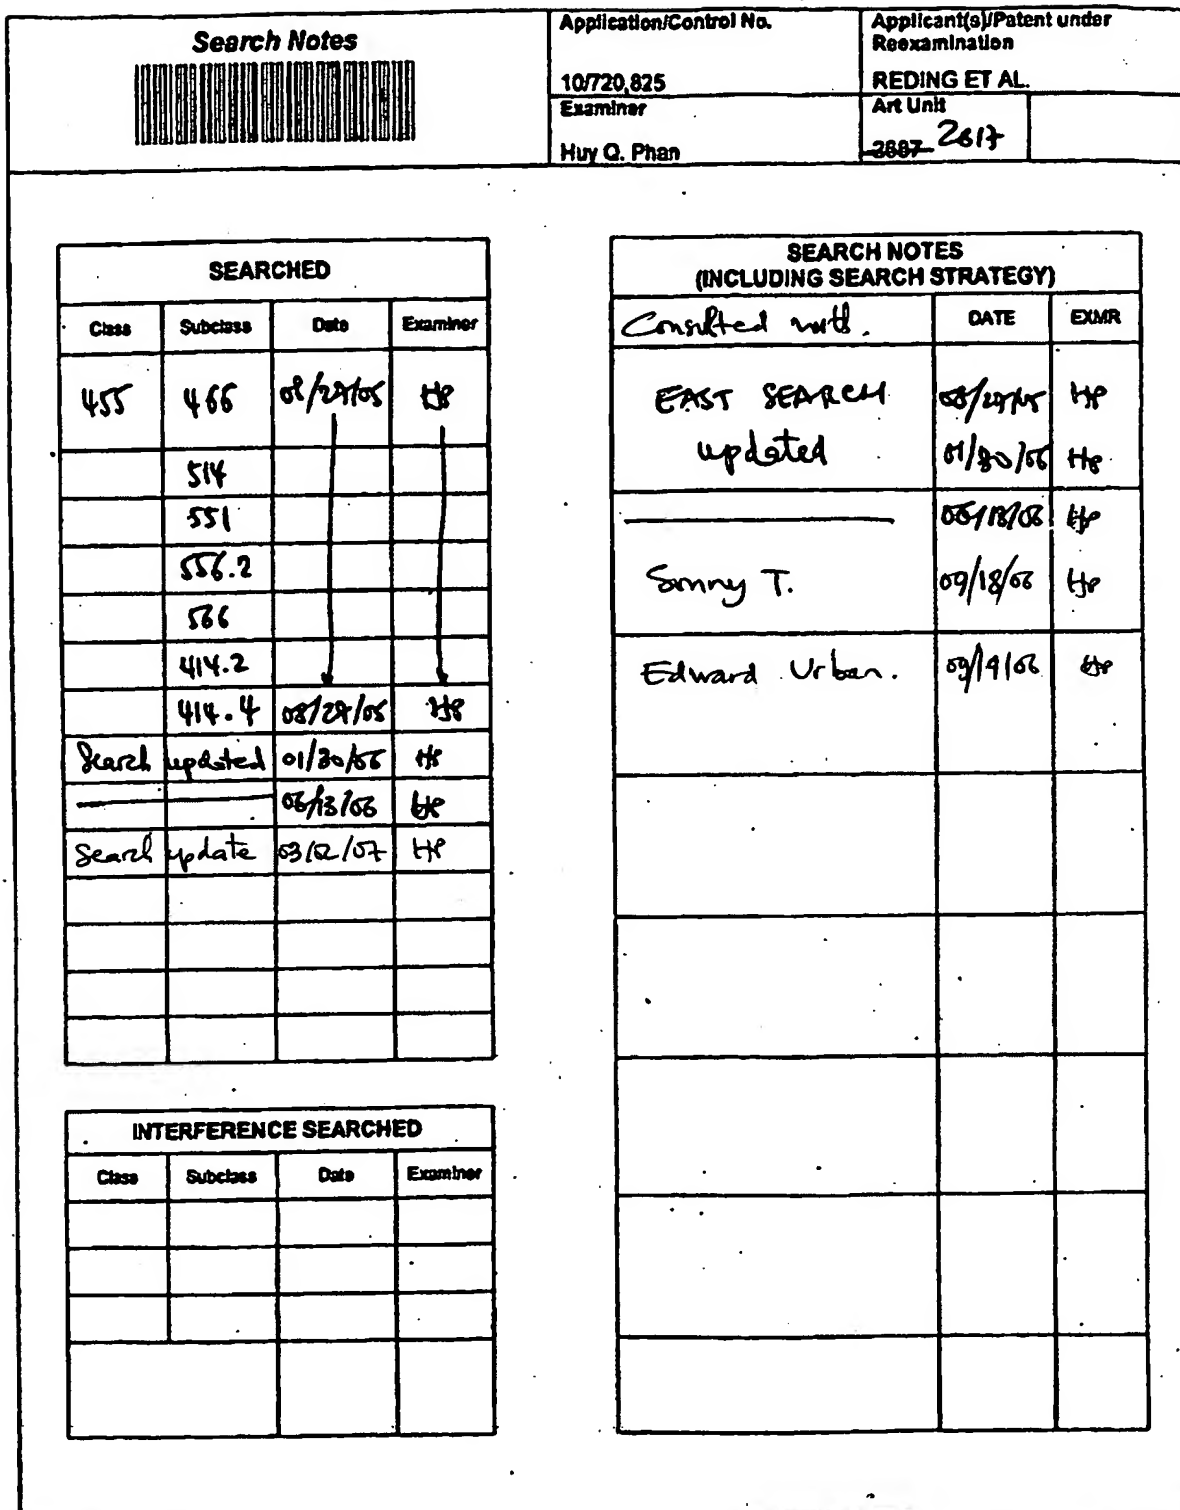 Search Notes
Application/Control No.
10/720,825
Applicant(s)/Patent under
Reexamination
REDING ET AL.
Examiner
Huy Q. Phan
Art Unit
2617
SEARCHED
Class Subclass Date Examiner
455 466 08/29/05 HP
514
551
556.2
566
414.2
414.4 08/29/05 HP
Search updated 01/30/06 HP
06/13/06 HP
Search update 03/02/07 HP
INTERFERENCE SEARCHED
Class Subclass Date Examiner
SEARCH NOTES
(INCLUDING SEARCH STRATEGY)
Consulted with. DATE EXMR
EAST SEARCH 08/29/05 HP
updated 01/30/06 HP
HP
Sonny T. 09/18/06 HP
Edward Urban. 09/19/06 HP